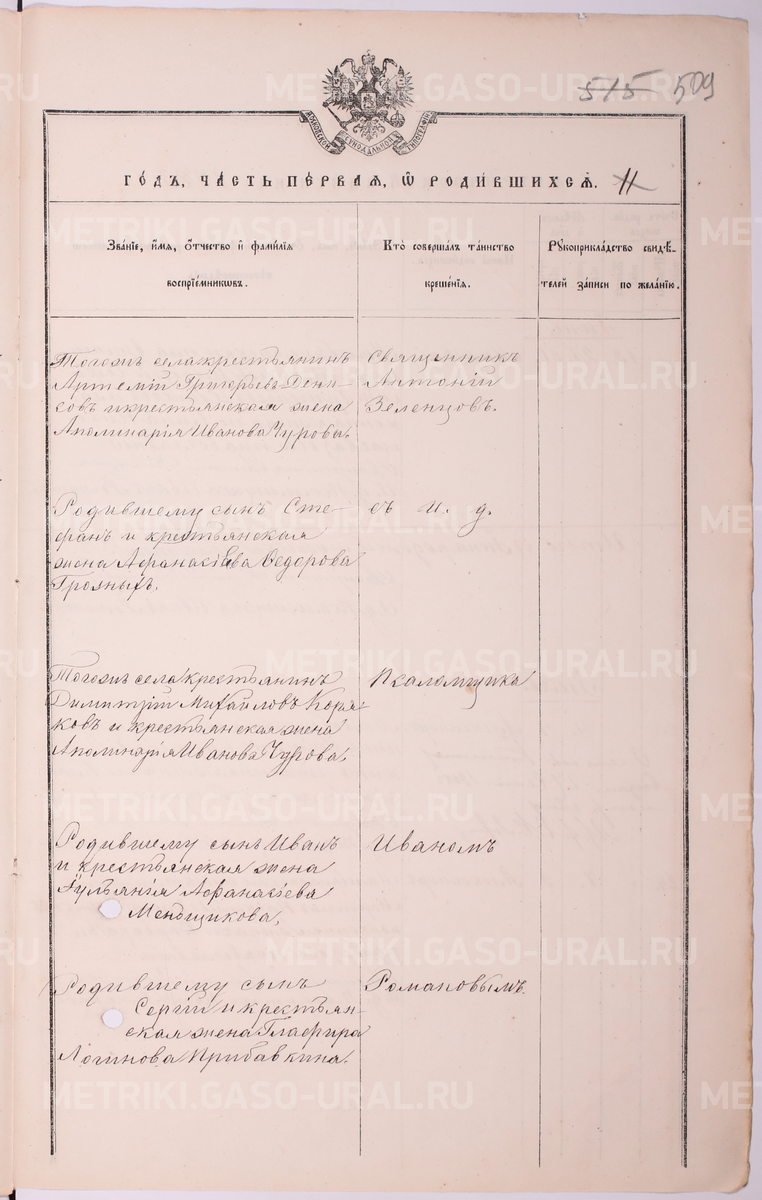 515 509
МОСКОВСКОЙ СѴНОДАЛЬНОЙ ТИПОГРАФІИ
ГОДЪ, ЧАСТЬ ПЕРВАЯ, Ѡ РОДИВШИХСЯ. 11
Званіе, имя, отчество и фамилія воспріемниковъ.
Кто совершалъ таинство крещенія.
Рукоприкладство свидѣтелей записи по желанію.
Тогожъ села крестьянинъ
Артемій Григорьевъ Дени-
совъ и крестьянская жена
Аполинарія Иванова Чуровы.
Священникъ
Антоній
Зеленцовъ.
Родившему сынъ Сте-
фанъ и крестьянская
жена Афанасіева Ѳедорова
Грозныхъ.
съ и. д.
Тогожъ села крестьянинъ
Димитрій Михайловъ Коря-
ковъ и крестьянская жена
Аполинарія Иванова Чурова.
Псаломщика
Родившему сынъ Иванъ
и крестьянская жена
Іульянія Афанасіева
Менщикова,
Иваномъ
Родившему сынъ
Сергій и крестьян-
ская жена Глафира
Логинова Прибавкина.
Романовымъ.
METRIKI.GASO-URAL.RU